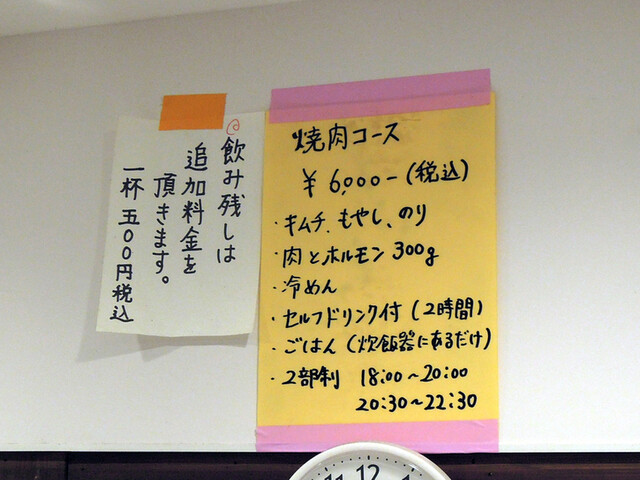 飲み残しは
追加料金を
頂きます。
一杯五〇〇円税込
焼肉コース
¥6,000-(税込)
・キムチ、もやし、のり
・肉とホルモン300g
・冷めん
・セルフドリンク付(2時間)
・ごはん(炊飯器にあるだけ)
・2部制 18:00~20:00
20:30~22:30
11 12 1